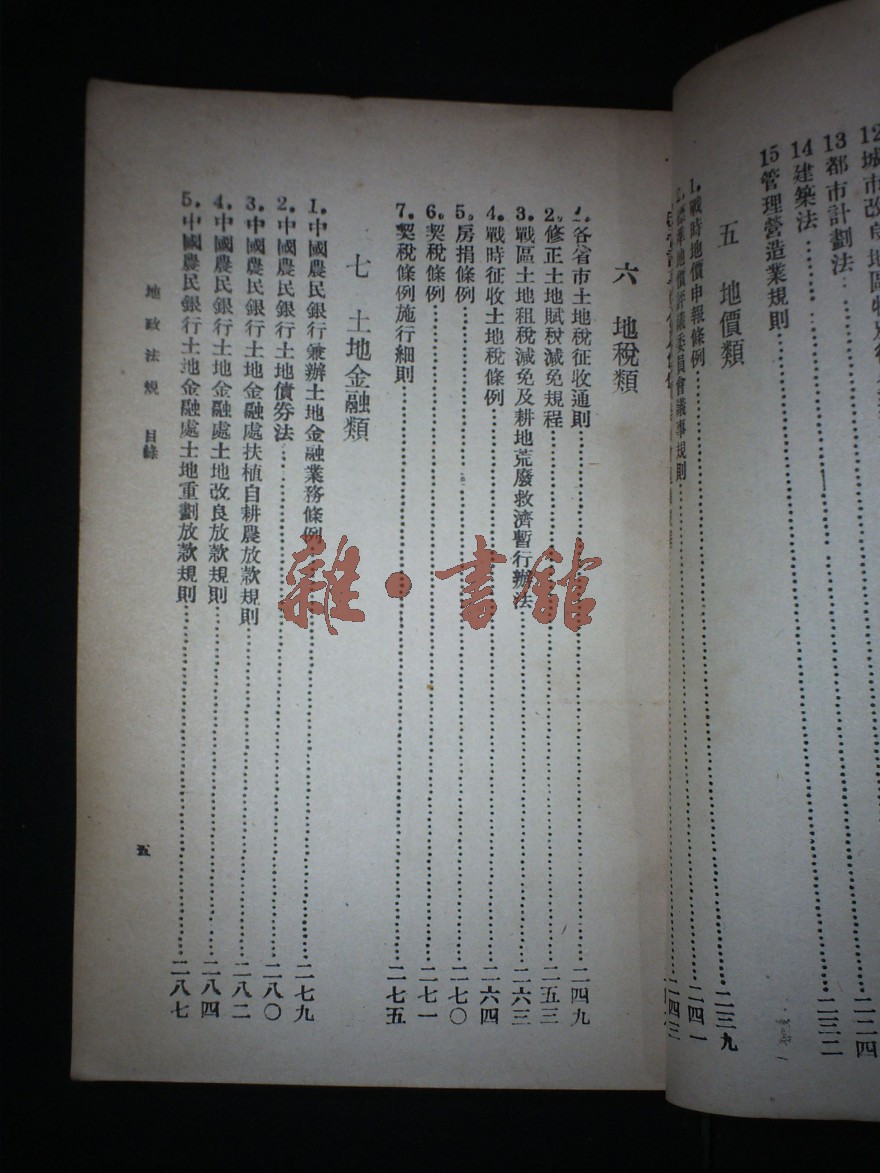 14 建築法 二三二
13 都市計劃法
15 管理營造業規則
五 地價類
1.戰時地價申報條例 二三九
2.標準地價評議委員會議事規則 二四一
六 地稅類
1.各省市土地稅征收通則 二四九
2.修正土地賦稅減免規程 二五三
3.戰區土地租稅減免及耕地荒廢救濟暫行辦法 二六三
4.戰時征收土地稅條例 二六四
5.房捐條例 二七〇
6.契稅條例 二七一
7.契稅條例施行細則 二七五
七 土地金融類
1.中國農民銀行兼辦土地金融業務條例 二七九
2.中國農民銀行土地債券法 二八〇
3.中國農民銀行土地金融處扶植自耕農放款規則 二八二
4.中國農民銀行土地金融處土地改良放款規則 二八四
5.中國農民銀行土地金融處土地重劃放款規則 二八七
地政法規 目錄
五
雜·書館